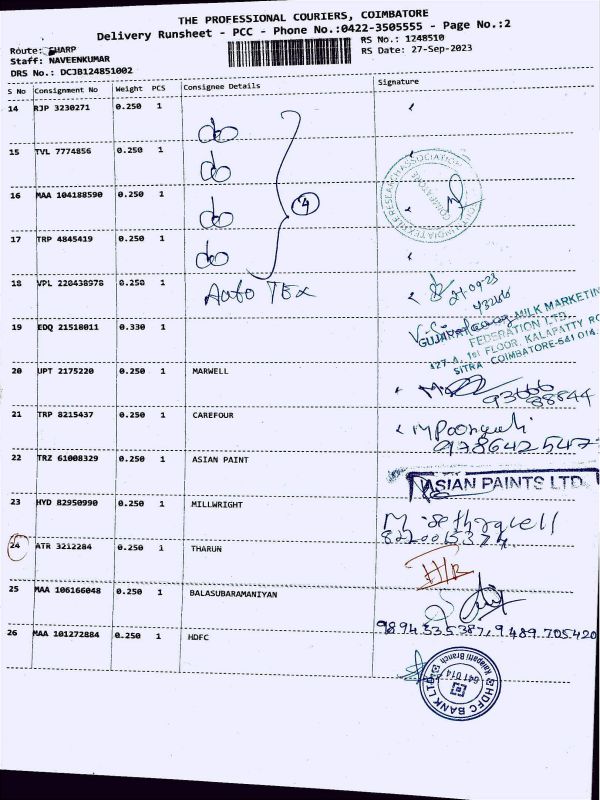 THE PROFESSIONAL COURIERS, COIMBATORE
Delivery Runsheet - PCC - Phone No.:0422-3505555 - Page No.:2
Route: SHARP
RS No.: 1248510
Staff: NAVEENKUMAR
RS Date: 27-Sep-2023
DRS No.: DCJB124851002
S No Consignment No Weight PCS Consignee Details Signature
14 RJP 3230271 0.250 1 do
15 TVL 7774856 0.250 1 do
16 MAA 104188590 0.250 1 do
4
17 TRP 4845419 0.250 1 do
18 VPL 220438978 0.250 1 Auto Tex
19 EDQ 21518011 0.330 1
GUJARAT MILK MARKETIN
FEDERATION LTD.
427-A, 1st FLOOR, KALAPATTY RO
SITRA COIMBATORE-641 014.
20 UPT 2175220 0.250 1 MARWELL
21 TRP 8215437 0.250 1 CAREFOUR
22 TRZ 61008329 0.250 1 ASIAN PAINT
ASIAN PAINTS LTD
23 HYD 82950990 0.250 1 MILLWRIGHT
24 ATR 3212284 0.250 1 THARUN
25 MAA 106166048 0.250 1 BALASUBARAMANIYAN
26 MAA 101272884 0.250 1 HDFC
HDFC BANK LTD
Kalapatti Branch
641 014